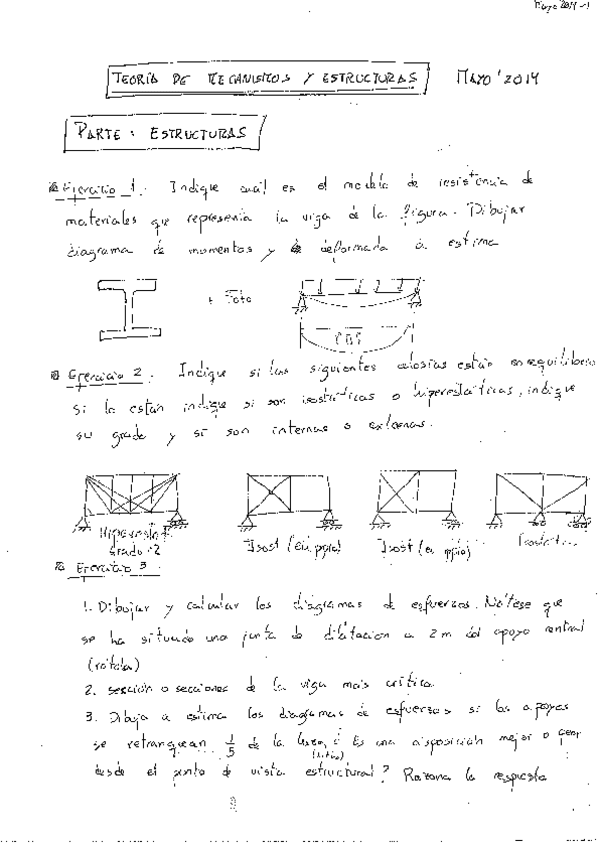 Mayo 2014 -1
TEORÍA DE MECANISMOS Y ESTRUCTURAS MAYO'2014
PARTE: ESTRUCTURAS
Ejercicio 1. Indique cuál es el modelo de resistencia de
materiales que representa la viga de la figura. Dibujar
diagrama de momentos y deformada a estima
+ Foto
Ejercicio 2. Indique si las siguientes celosías están en equilibrio
si lo están indique si son isostáticas o hiperestáticas, indique
su grado y si son internas o externas.
Hiperestát
Grado 2
Isost (en ppio)
Isost (en ppio)
Ejercicio 3
1. Dibujar y calcular los diagramas de esfuerzos. Nótese que
se ha situado una junta de dilatación a 2m del apoyo central
(rótula)
2. sección o secciones de la viga más crítica
3. Dibuja a estima los diagramas de esfuerzos si los apoyos
se retranquean 1/5 de la luz ¿ Es una disposición mejor o peor
desde el punto de vista estructural? Razona la respuesta